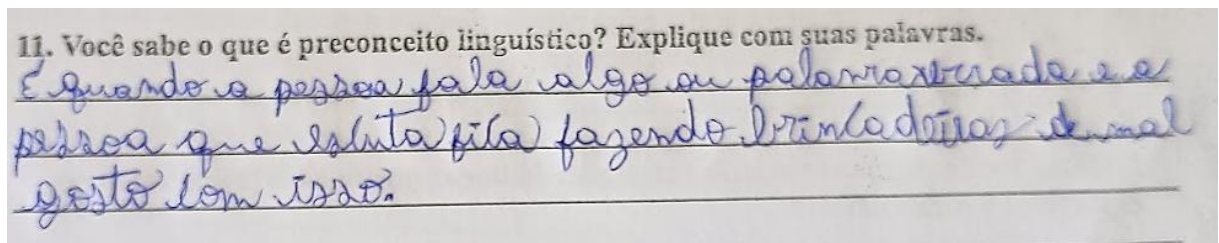 11. Você sabe o que é preconceito linguístico? Explique com suas palavras.
É quando a pessoa fala algo ou palavra errada e a
pessoa que escuta fica fazendo brincadeiras de mal
gosto com isso.